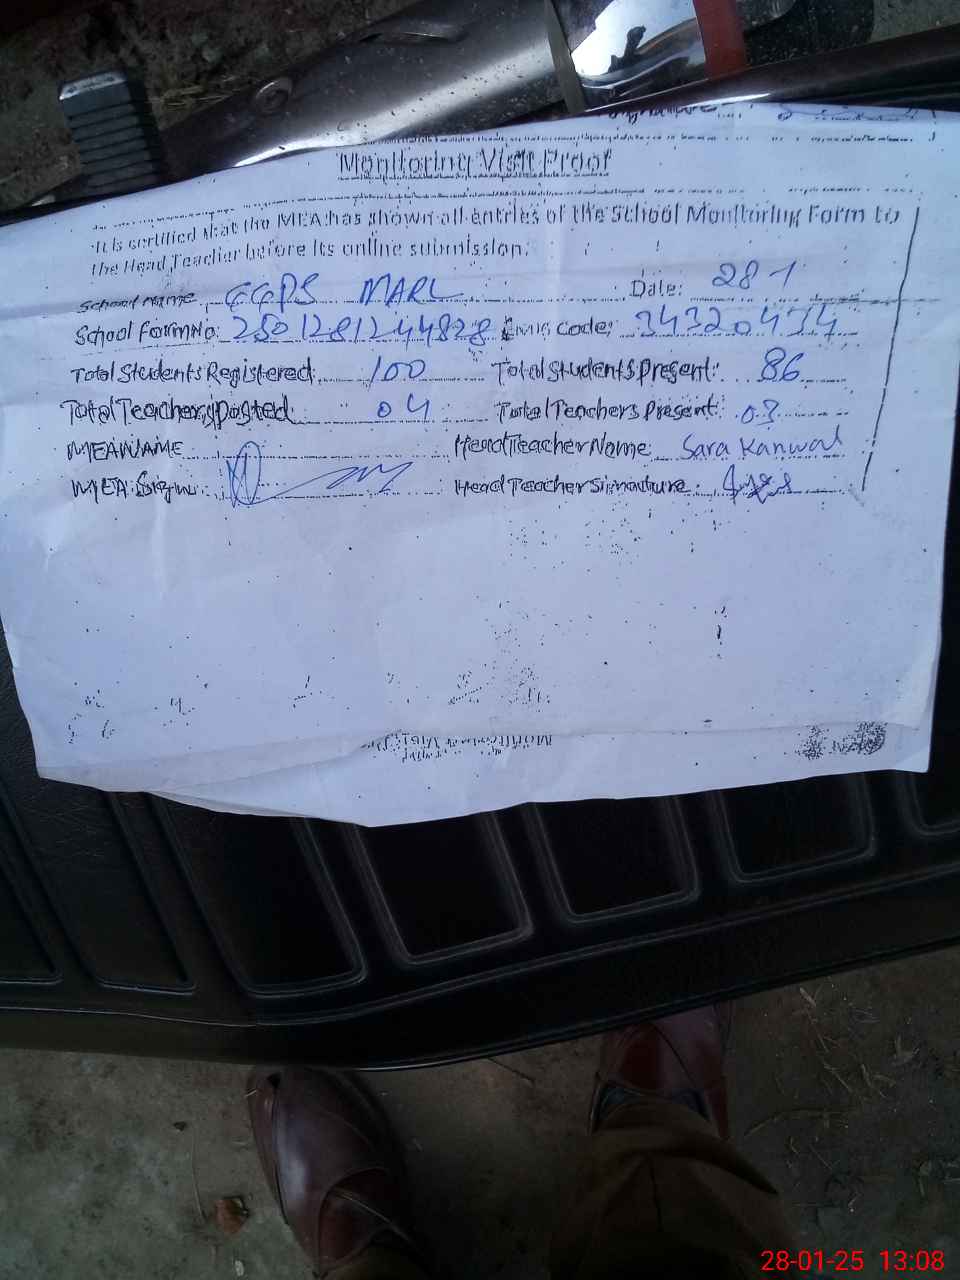 Monitoring Visit Proof
It is certified that the MEA has shown all entries of the School Monitoring Form to
the Head Teacher before its online submission.
School Name GGPS MARL Date: 28 1
School Form No: 2501281244828 Emis Code: 34320434
Total Students Registered: 100 Total Students Present: 86
Total Teachers posted: 04 Total Teachers Present: 03
MEA NAME Head Teacher Name: Sara Kanwal
MEA Sign: Head Teacher Signature:
28-01-25 13:08